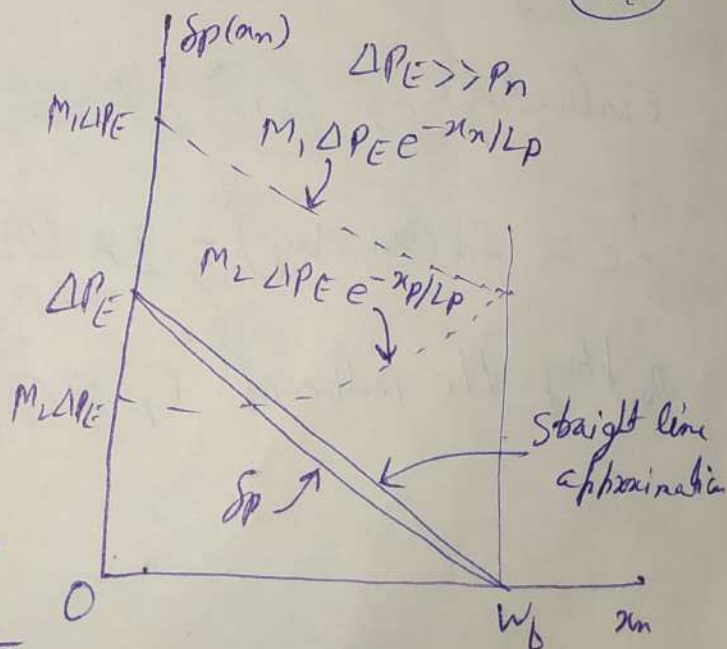 δp(xn)
ΔPE>>Pn
M1ΔPE
M1 ΔPE e^-xn/Lp
M2 ΔPE e^-xp/Lp
ΔPE
M2ΔPE
Straight line
approximation
δp
O
Wb
xn